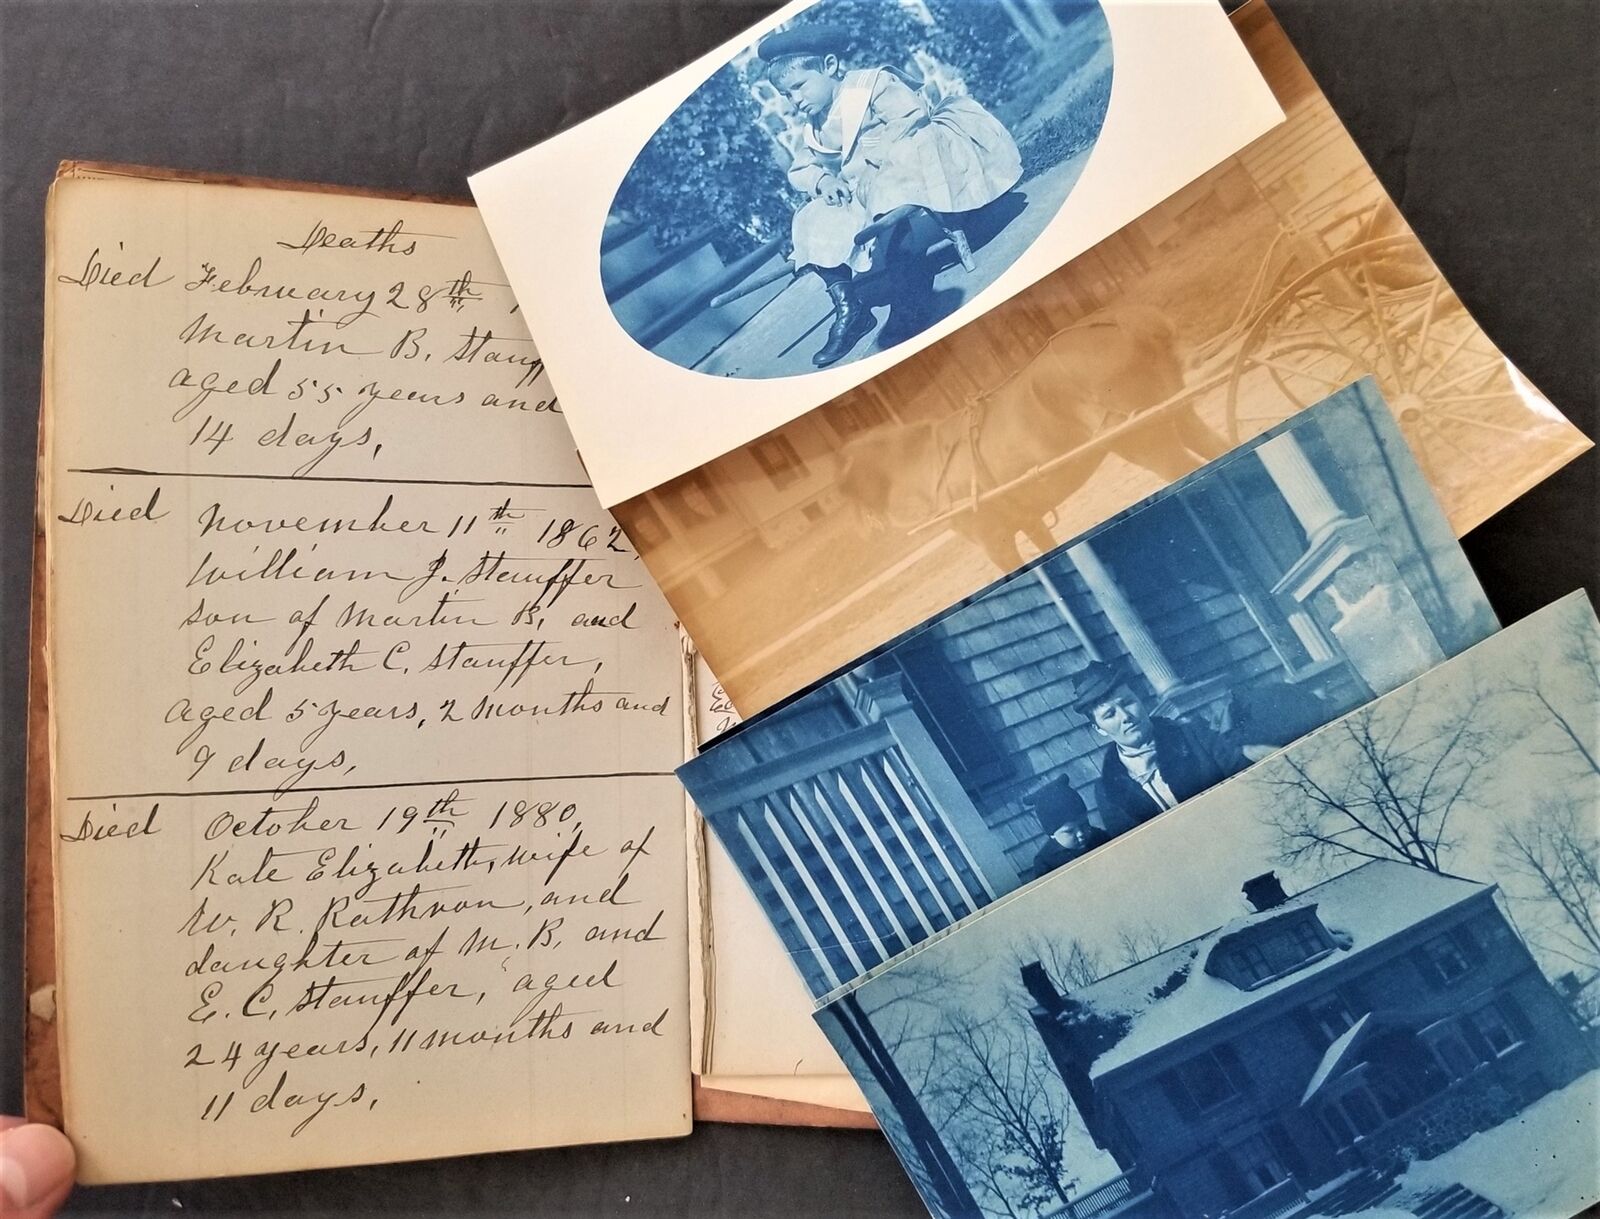 Deaths
Died February 28th
Martin B. Stauff
aged 55 years and
14 days,
Died November 11th 1862,
William J. Stauffer
son of Martin B. and
Elizabeth C. Stauffer,
aged 5 years, 2 months and
9 days,
Died October 19th 1880,
Kate Elizabeth, wife of
W. R. Rathvon, and
daughter of M. B. and
E. C. Stauffer, aged
24 years, 11 months and
11 days,